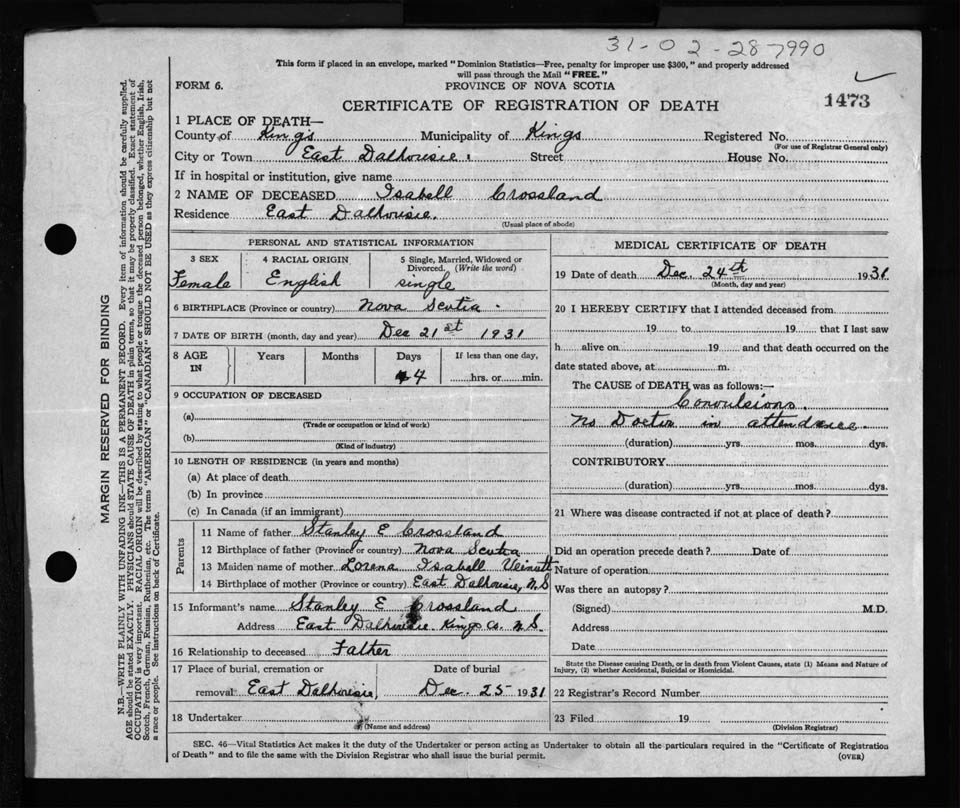 31-02-287990
This form if placed in an envelope, marked "Dominion Statistics—Free, penalty for improper use $300," and properly addressed
will pass through the Mail "FREE."
FORM 6.
PROVINCE OF NOVA SCOTIA
CERTIFICATE OF REGISTRATION OF DEATH
1473
1 PLACE OF DEATH—
County of King's Municipality of Kings Registered No.
(For use of Registrar General only)
City or Town East Dalhousie Street House No.
If in hospital or institution, give name
2 NAME OF DECEASED Isabell Crossland
Residence East Dalhousie.
(Usual place of abode)
PERSONAL AND STATISTICAL INFORMATION
3 SEX 4 RACIAL ORIGIN 5 Single, Married, Widowed or
Divorced. (Write the word)
Female English single
6 BIRTHPLACE (Province or country) Nova Scotia.
7 DATE OF BIRTH (month, day and year) Dec 21st 1931
8 AGE IN Years Months Days If less than one day,
4 hrs. or min.
9 OCCUPATION OF DECEASED
(a)
(Trade or occupation or kind of work)
(b)
(Kind of industry)
10 LENGTH OF RESIDENCE (in years and months)
(a) At place of death
(b) In province
(c) In Canada (if an immigrant)
Parents
11 Name of father Stanley E Crossland
12 Birthplace of father (Province or country) Nova Scotia
13 Maiden name of mother Lorena Isabell Veinott
14 Birthplace of mother (Province or country) East Dalhousie, N.S
15 Informant's name Stanley E Crossland
Address East Dalhousie Kings Co. N.S.
16 Relationship to deceased Father
17 Place of burial, cremation or Date of burial
removal East Dalhousie, Dec. 25 1931
18 Undertaker
(Name and address)
MEDICAL CERTIFICATE OF DEATH
19 Date of death Dec 24th 1931
(Month, day and year)
20 I HEREBY CERTIFY that I attended deceased from
19 to 19 that I last saw
h alive on 19 and that death occurred on the
date stated above, at m.
The CAUSE of DEATH was as follows:—
Convulsions.
No Doctor in attendance.
(duration) yrs. mos. dys.
CONTRIBUTORY
(duration) yrs. mos. dys.
21 Where was disease contracted if not at place of death?
Did an operation precede death? Date of
Nature of operation
Was there an autopsy?
(Signed) M.D.
Address
Date
State the Disease causing Death, or in death from Violent Causes, state (1) Means and Nature of
Injury, (2) whether Accidental, Suicidal or Homicidal.
22 Registrar's Record Number
23 Filed 19
(Division Registrar)
SEC. 46—Vital Statistics Act makes it the duty of the Undertaker or person acting as Undertaker to obtain all the particulars required in the "Certificate of Registration
of Death" and to file the same with the Division Registrar who shall issue the burial permit.
(OVER)
MARGIN RESERVED FOR BINDING
N.B.—WRITE PLAINLY WITH UNFADING INK—THIS IS A PERMANENT RECORD. Every item of information should be carefully supplied.
AGE should be stated EXACTLY. PHYSICIANS should STATE CAUSE OF DEATH in plain terms, so that it may be properly classified. Exact statement of
OCCUPATION is very important. RACIAL ORIGIN will be described by stating to what people or tongue the deceased person belonged, whether English, Irish,
Scotch, French, German, Russian, Ruthenian, etc. The terms "AMERICAN" or "CANADIAN" SHOULD NOT BE USED as they express citizenship but not
a race or people. See instructions on back of Certificate.